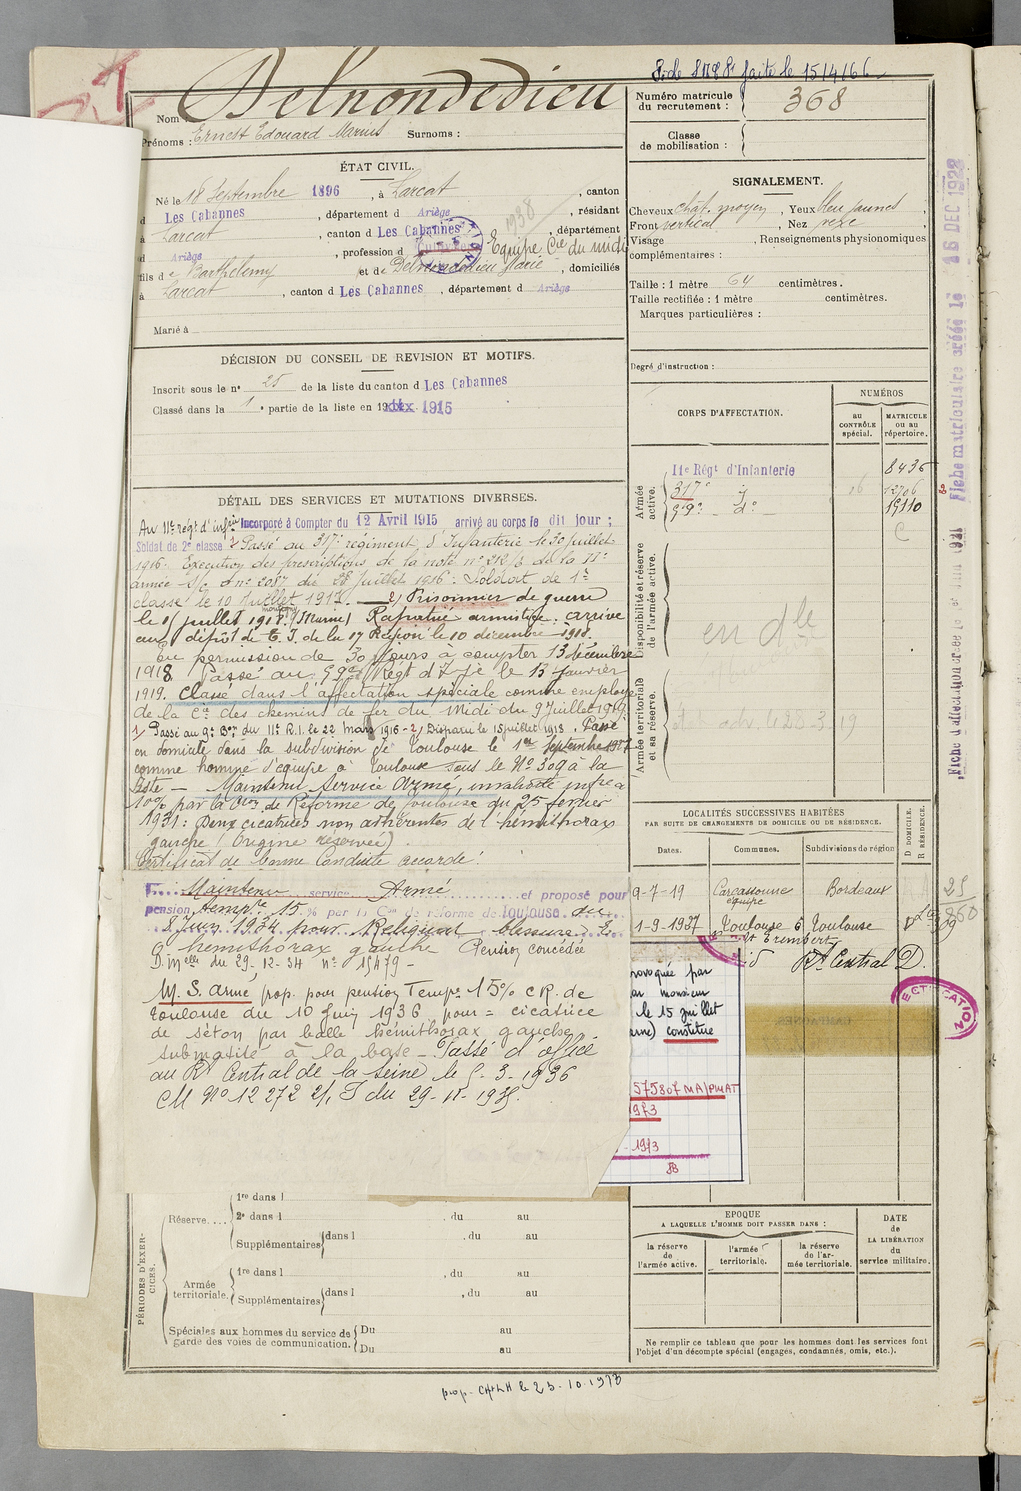 Fiche faite le 15/4/66
Nom : Delnondedieu
Prénoms : Ernest Edouard Marius Surnoms :
Numéro matricule du recrutement : 368
Classe de mobilisation :
ÉTAT CIVIL.
Né le 18 Septembre 1896, à Larcat, canton
d Les Cabannes, département d Ariège, résidant
à Larcat, canton d Les Cabannes, département
d Ariège, profession d
Equipe Cie du midi
1938
fils d e Barthélemy et de Delnondedieu Marie, domiciliés
à Larcat, canton d Les Cabannes, département d Ariège
Marié à
SIGNALEMENT.
Cheveux chat. moyen, Yeux bleu jaunes,
Front vertical, Nez rexe,
Visage , Renseignements physionomiques
complémentaires :
Taille : 1 mètre 64 centimètres.
Taille rectifiée : 1 mètre centimètres.
Marques particulières :
Degré d'instruction :
DÉCISION DU CONSEIL DE REVISION ET MOTIFS.
Inscrit sous le n° 25 de la liste du canton d Les Cabannes
Classé dans la 1e partie de la liste en 1915
DÉTAIL DES SERVICES ET MUTATIONS DIVERSES.
Au 11e régt d'infie Incorporé à Compter du 12 Avril 1915, arrivé au corps le dit jour ;
Soldat de 2e classe 1) Passé au 317e régiment d'Infanterie le 30 juillet
1916. Exécution des prescriptions de la note n° 212/3 de la IIe
armée n° 2087 du 28 juillet 1916. Soldat de 1e
classe le 10 Juillet 1917. 2) Prisonnier de guerre
le 15 juillet 1918 (Marne) Rapatrié armistice. arrivé
au dépôt de E. I. de la 17 Région le 10 décembre 1918.
En permission de 30 jours à compter 13 décembre
1918 Passé au 59e Régt d'Ie le 13 janvier
1919. Classé dans l'affectation spéciale comme employé
de la Cie des chemins de fer du Midi du 9 Juillet 1919
1) Passé au 9e Bon du 11e R.I. le 22 mars 1916 - 2) Disparu le 15 juillet 1918. Passé
en domicile dans la subdivision de Toulouse le 1er septembre 1937
comme homme d'équipe à Toulouse sous le N° 309 à la
liste - Maintenu Service Armé, invalidité infre à
10% par la Con de Réforme de Toulouse du 25 février
1931 : Deux cicatrices non adhérentes de l'hémithorax
gauche (Origine réservée)
Certificat de bonne Conduite accordé.
Maintenu service Armé et proposé pour
pension tempre 15 % par la Con de réforme de Toulouse du
8 Juin 1934 pour Reliquat blessure de
l'hémithorax gauche Pension concédée
D. Melle du 29-12-34 n° 15479 -
M. S. armé prop. pour pension Tempe 15% CR. de
Toulouse du 10 Juin 1936 pour = cicatrice
de séton par balle hémithorax gauche
submatité à la base - Passé d'office
au Rt Central de la Seine le 5-3-1936
CM N° 12 272 2/1 I du 29-11-1935
CORPS D'AFFECTATION.
NUMÉROS
au CONTRÔLE spécial.
MATRICULE ou au répertoire.
Armée active.
11e Régt d'Infanterie 8436
317e d° 16 12706
59e d° 19110
Disponibilité et réserve de l'armée active.
en dle
Armée territoriale et sa réserve.
LOCALITÉS SUCCESSIVES HABITÉES
PAR SUITE DE CHANGEMENTS DE DOMICILE OU DE RÉSIDENCE.
D DOMICILE. R RÉSIDENCE.
Dates. Communes. Subdivisions de région
9-7-19 Carcassonne Bordeaux
équipe
1-9-1937 Toulouse 6 Toulouse D
Rt Central D.
rovoquée par
monsieur
le 15 juillet
constitue
575807 MA/PMAT
1973
-1973
RECTIFICATION
PÉRIODES D'EXERCICES.
Réserve....
1re dans l
2e dans l , du au
Supplémentaires dans l , du au
Armée territoriale.
1re dans l , du au
Supplémentaires dans l , du au
Spéciales aux hommes du service de garde des voies de communication.
Du au
Du au
EPOQUE
A LAQUELLE L'HOMME DOIT PASSER DANS :
la réserve de l'armée active.
l'armée territoriale.
la réserve de l'armée territoriale.
DATE de LA LIBÉRATION du service militaire.
Ne remplir ce tableau que pour les hommes dont les services font
l'objet d'un décompte spécial (engagés, condamnés, omis, etc.).
prop. CH+LH le 23-10-1973
Fiche matriculaire créée le 16 DEC 1922
Fiche d'affectation créée le 1931